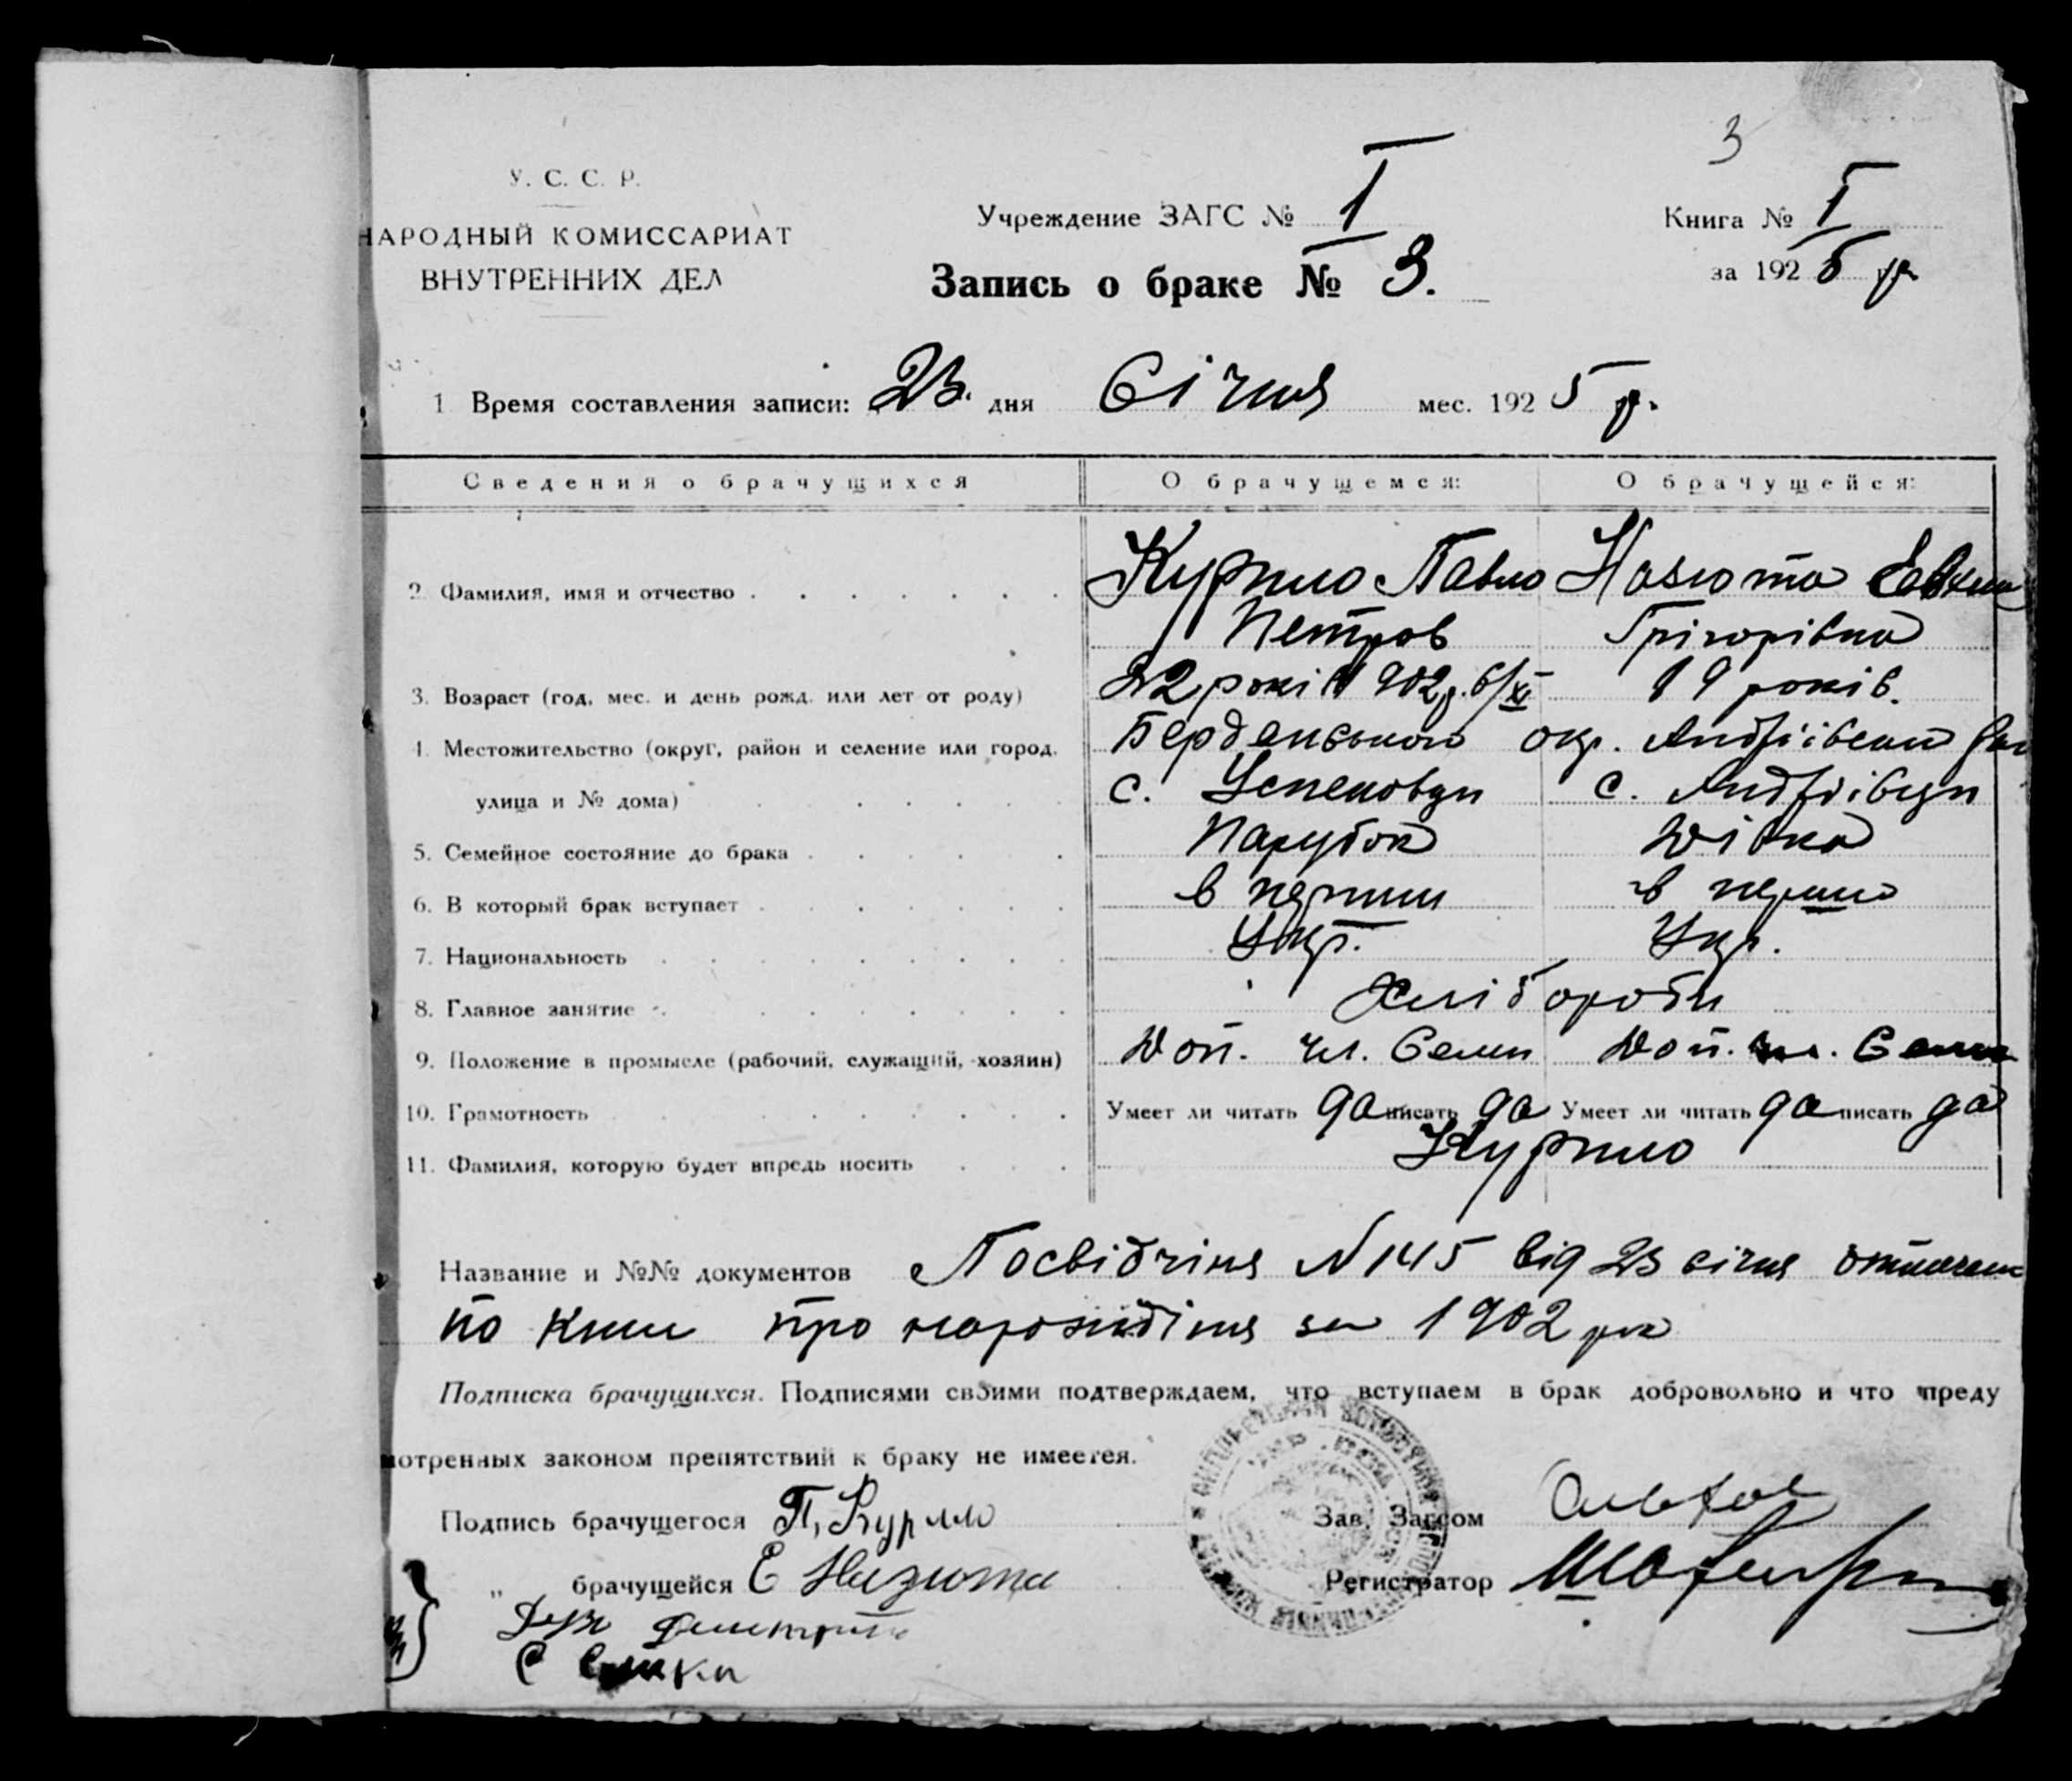 3
У. С. С. Р.
НАРОДНЫЙ КОМИССАРИАТ
ВНУТРЕННИХ ДЕЛ
Учреждение ЗАГС № I
Книга № I
за 1925 р.
Запись о браке № 3.
1 Время составления записи: 23. дня Січня мес. 1925 р.
Сведения о брачущихся О брачущемся: О брачущейся:
2. Фамилия, имя и отчество Курило Павло Назюта
Петров Грігорівна
3. Возраст (год, мес. и день рожд. или лет от роду) 22 років 1902 р. 6/XI 19 років.
4. Местожительство (округ, район и селение или город, Бердянського окр. Андріївський рай
улица и № дома) с. Успеновци с. Андріівци
5. Семейное состояние до брака Парубок Дівка
6. В который брак вступает в перший в перший
7. Национальность Укр. Укр.
8. Главное занятие Хлібороби
9. Положение в промысле (рабочий, служащий, хозяин) Доп. чл. Семи Доп. чл. Семи
10. Грамотность Умеет ли читать да писать да Умеет ли читать да писать да
11. Фамилия, которую будет впредь носить Курило
Название и №№ документов Посвідчіня N 145 від 23 січня
по книзі про народження за 1902 рік
Подписка брачущихся. Подписями своими подтверждаем, что вступаем в брак добровольно и что преду
мотренных законом препятствий к браку не имеется.
Подпись брачущегося П. Курило
Зав. Загсом
„ брачущейся Е Назюта
Регистратор